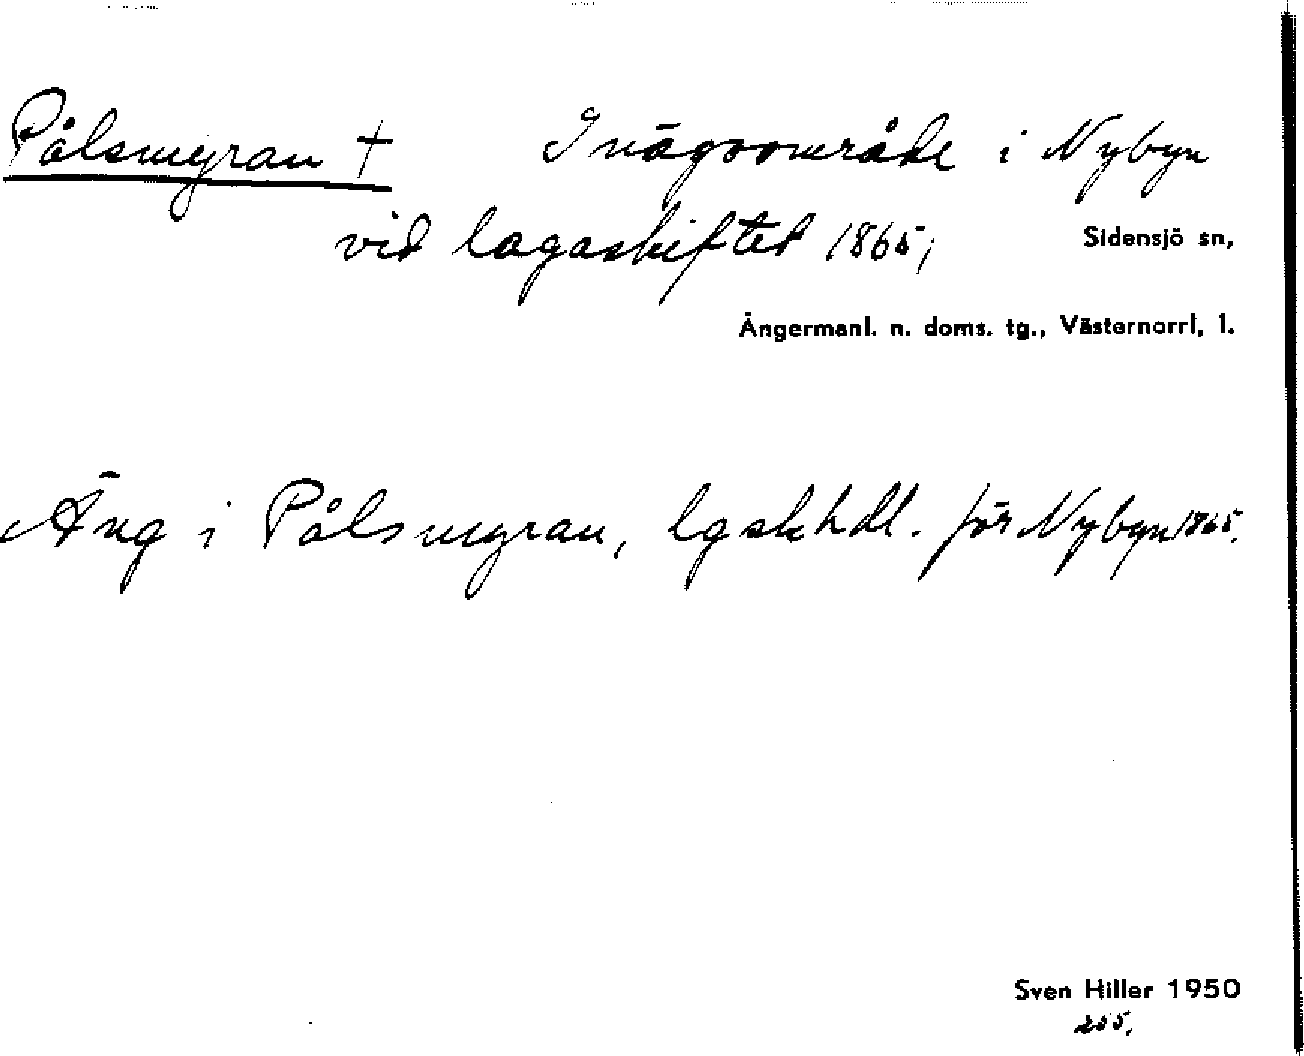 Pålsmyran † Inägoområde i Nybyn
vid lagaskiftet 1865;
Sidensjö sn,
Ångermanl. n. doms. tg., Västernorrl. l.
Äng i Pålsmyran, lgskhdl. för Nybyn 1865.
Sven Hiller 1950
205.